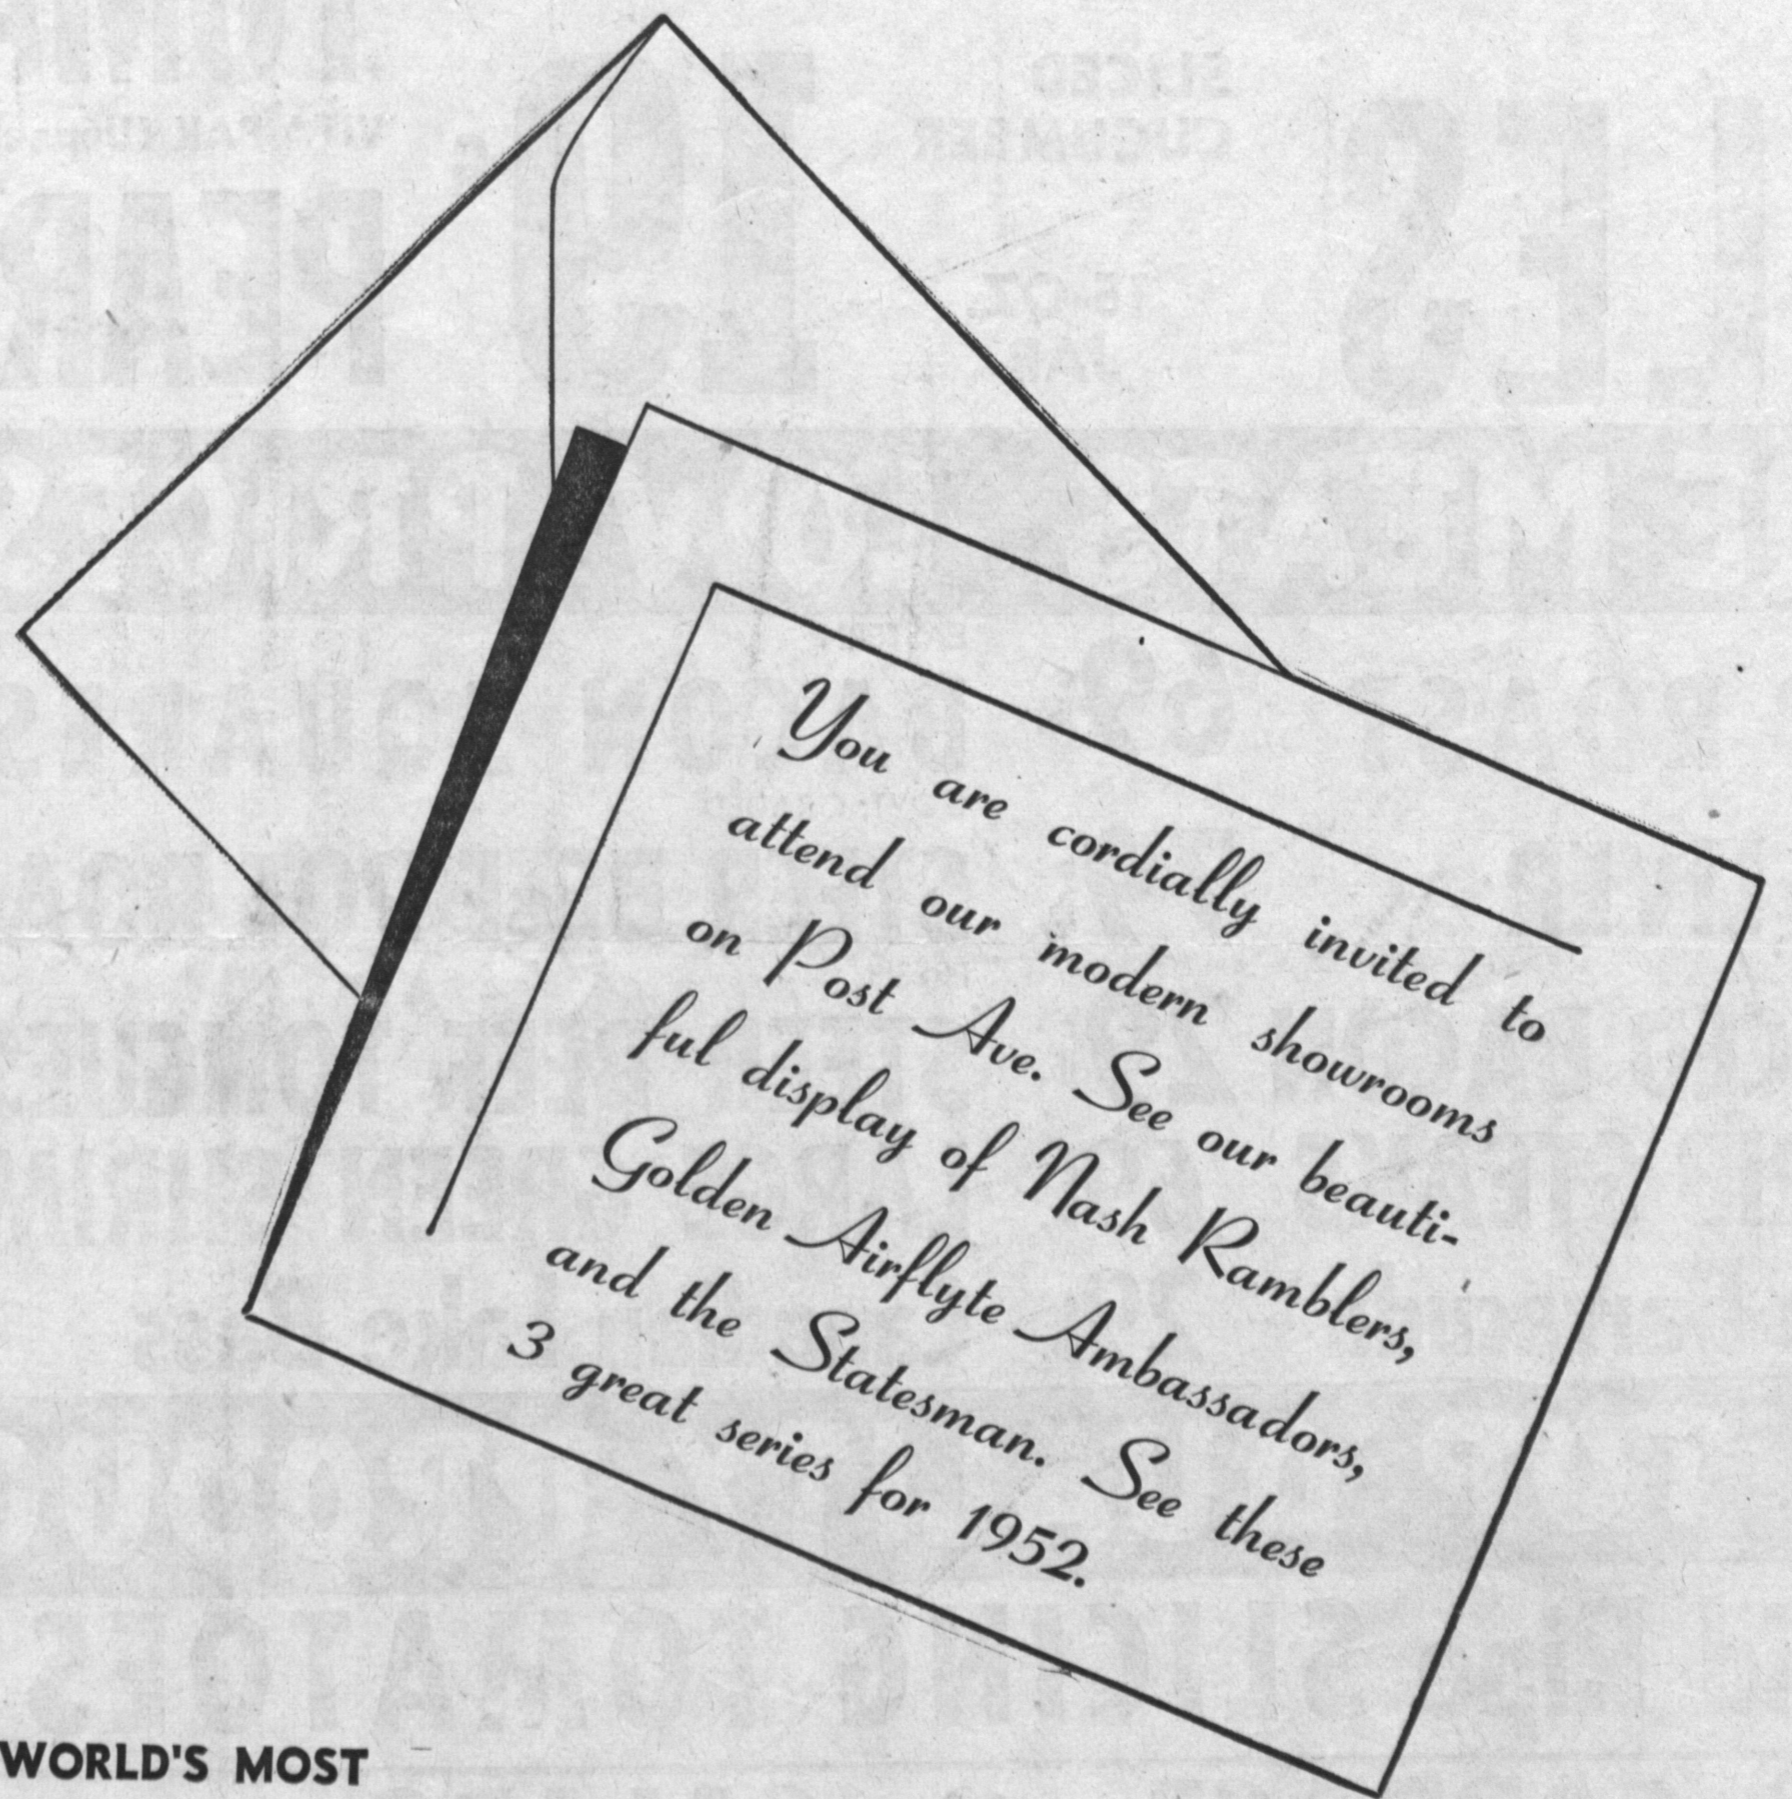 You are cordially invited to
attend our modern showrooms
on Post Ave. See our beauti-
ful display of Nash Ramblers,
Golden Airflyte Ambassadors,
and the Statesman. See these
3 great series for 1952.
WORLD'S MOST